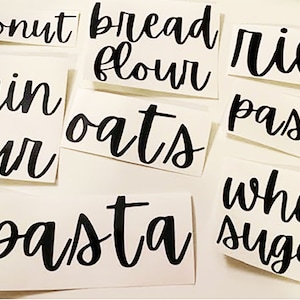 onut
bread
flour
ri
in
ur
oats
pas
whi
suga
pasta